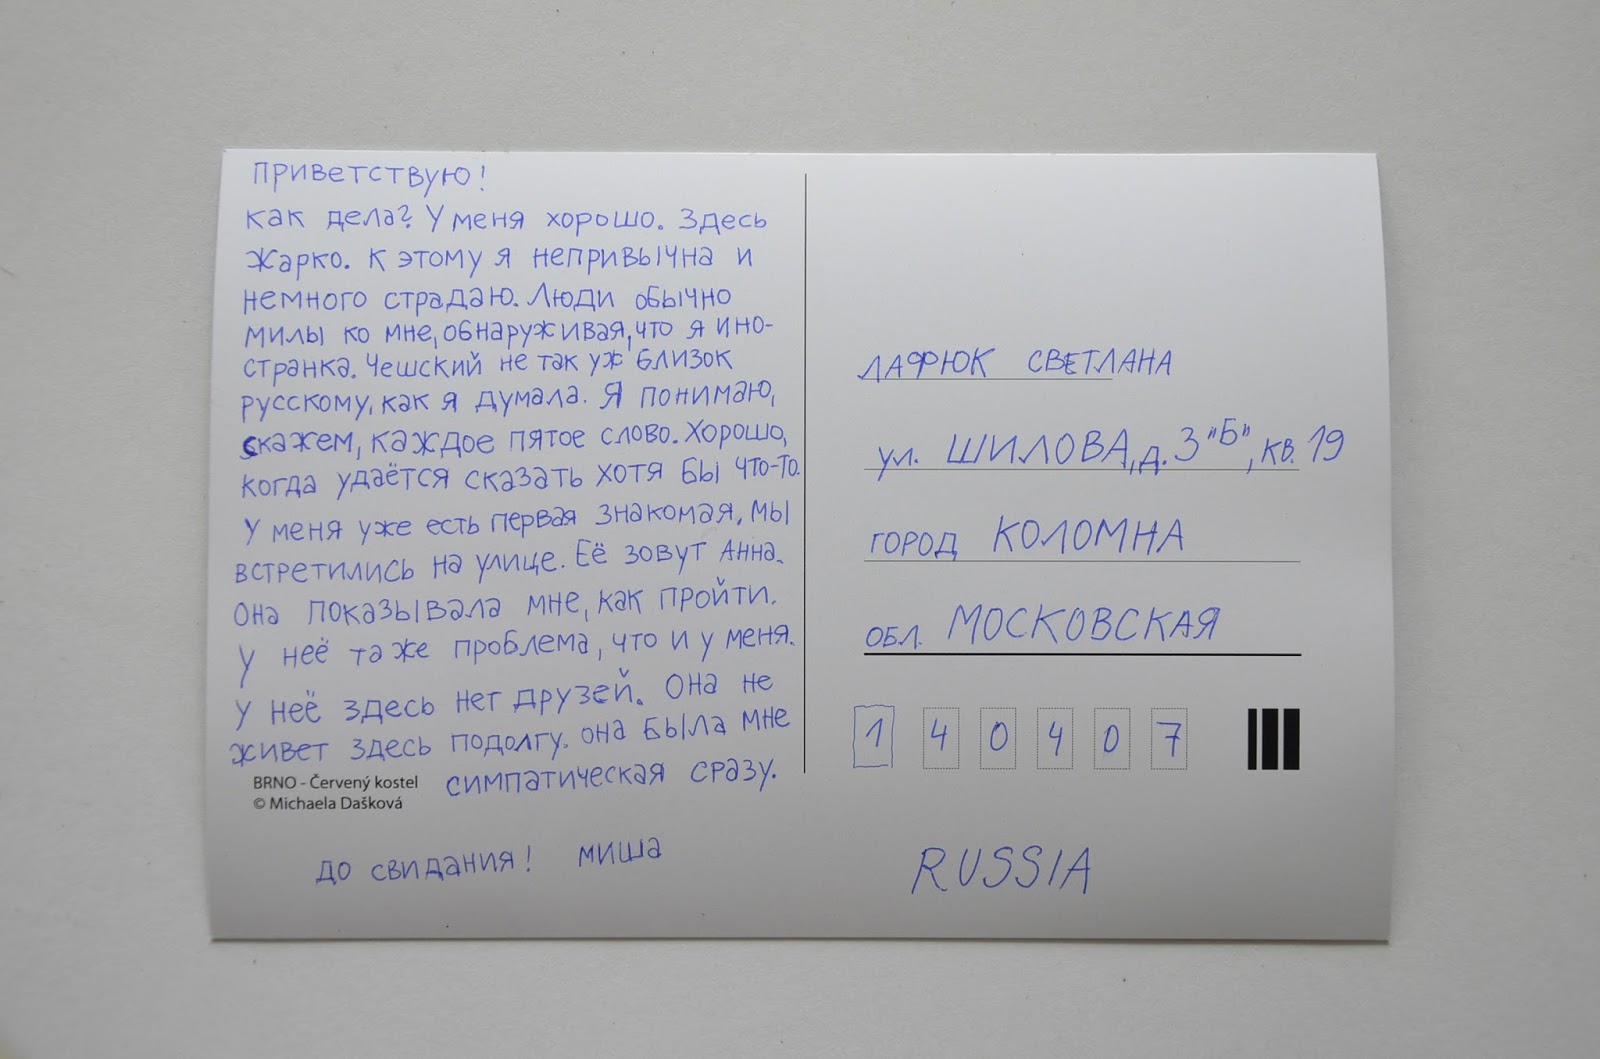 Приветствую!
Как дела? У меня хорошо. Здесь
жарко. К этому я непривычна и
немного страдаю. Люди обычно
милы ко мне, обнаруживая, что я ино-
странка. Чешский не так уж близок
русскому, как я думала. Я понимаю,
скажем, каждое пятое слово. Хорошо,
когда удаётся сказать хотя бы что-то.
У меня уже есть первая знакомая, мы
встретились на улице. Её зовут Анна.
Она показывала мне, как пройти.
У неё та же проблема, что и у меня.
У неё здесь нет друзей. Она не
живет здесь подолгу. Она была мне
симпатическая сразу.
BRNO - Červený kostel
© Michaela Dašková
До свидания! Миша
ЛАФЮК СВЕТЛАНА
ул. ШИЛОВА, д. 3 "Б", кв. 19
город КОЛОМНА
обл. МОСКОВСКАЯ
1 4 0 4 0 7
RUSSIA